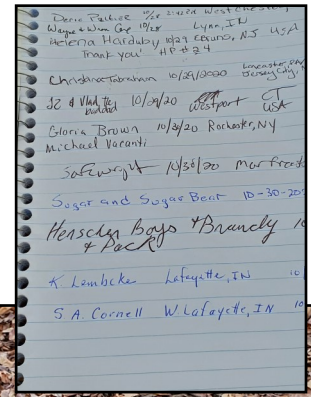 10/28 West Chester
Wayne & Wava 10/28 Lynn, IN
Helena Harduby, 10/29 NJ USA
Thank you! HP # 24
Christina Tabraham 10/29/2020 Lancaster, PA/
Jersey City,
JZ & Vlad the 10/29/20 Westport CT
USA
Gloria Brown 10/30/20 Rochester, NY
Michael Varanti
10/30/20
Sugar and Sugar Bear 10-30-20
Henschen Boys + Brandy 10
+ Pack
K. Lembcke Lafayette, IN 10
S. A. Cornell W. Lafayette, IN 10